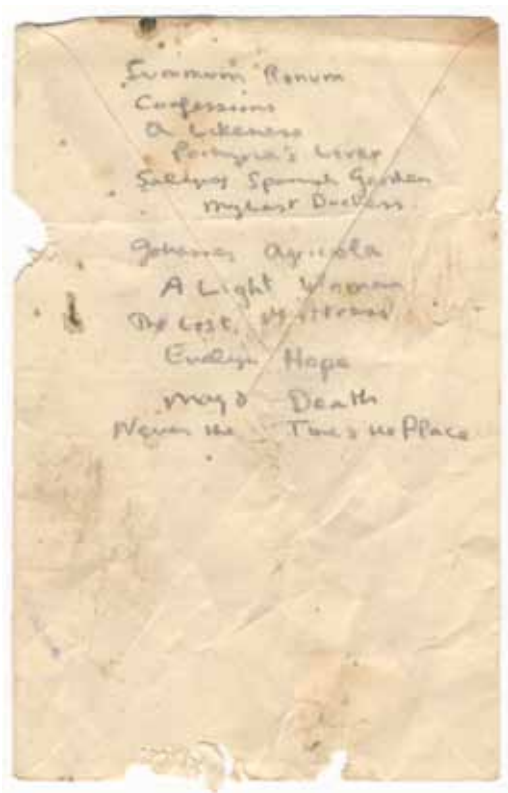 Summum Bonum
Confessions
A Likeness
Porhyria's Lover
Spanish Garden
My Last Duchess
Johannes Agricola
A Light Woman
The Lost Mistress
Evelyn Hope
May & Death
Never the Time & the Place